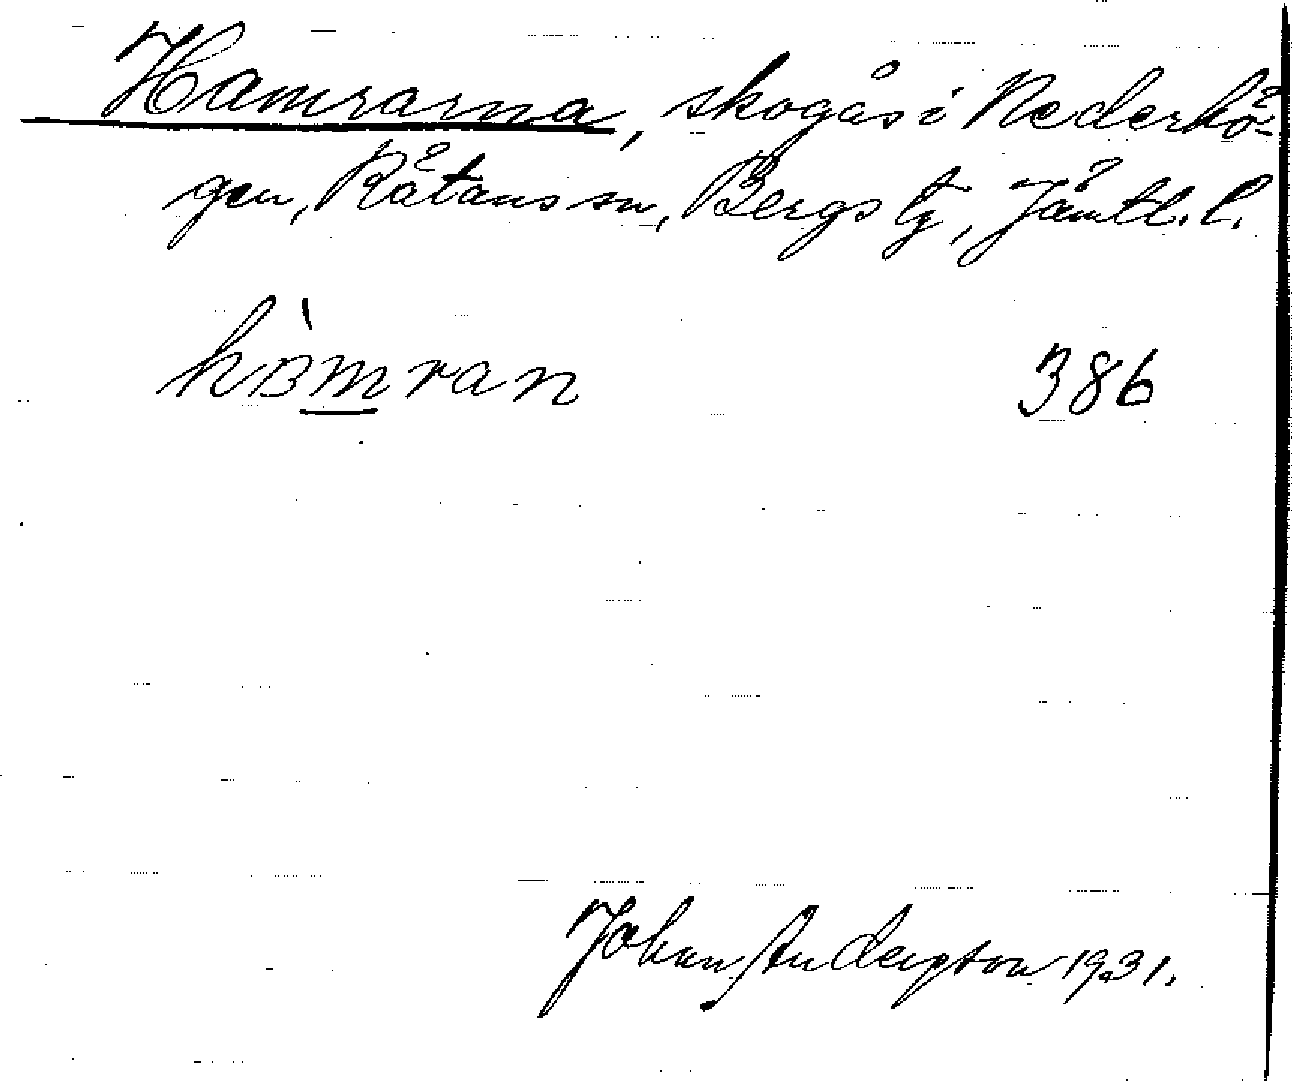 Hamrarna, skogås i Nederhö-
gen, Rätans sn, Bergs tg, Jämtl. l.
hɜ̀mran 386
Johan Anderson 1931.